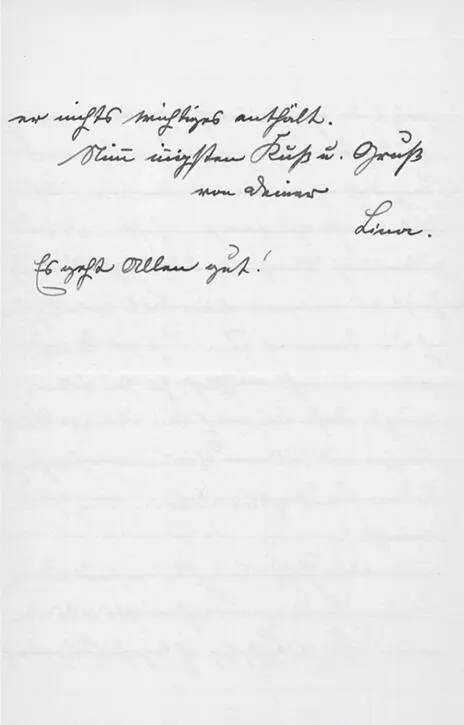 er nichts wichtiges enthält.
Nim̅ innigsten Kuß u. Gruß
von Deiner
Lina.
Es geht Allen gut!